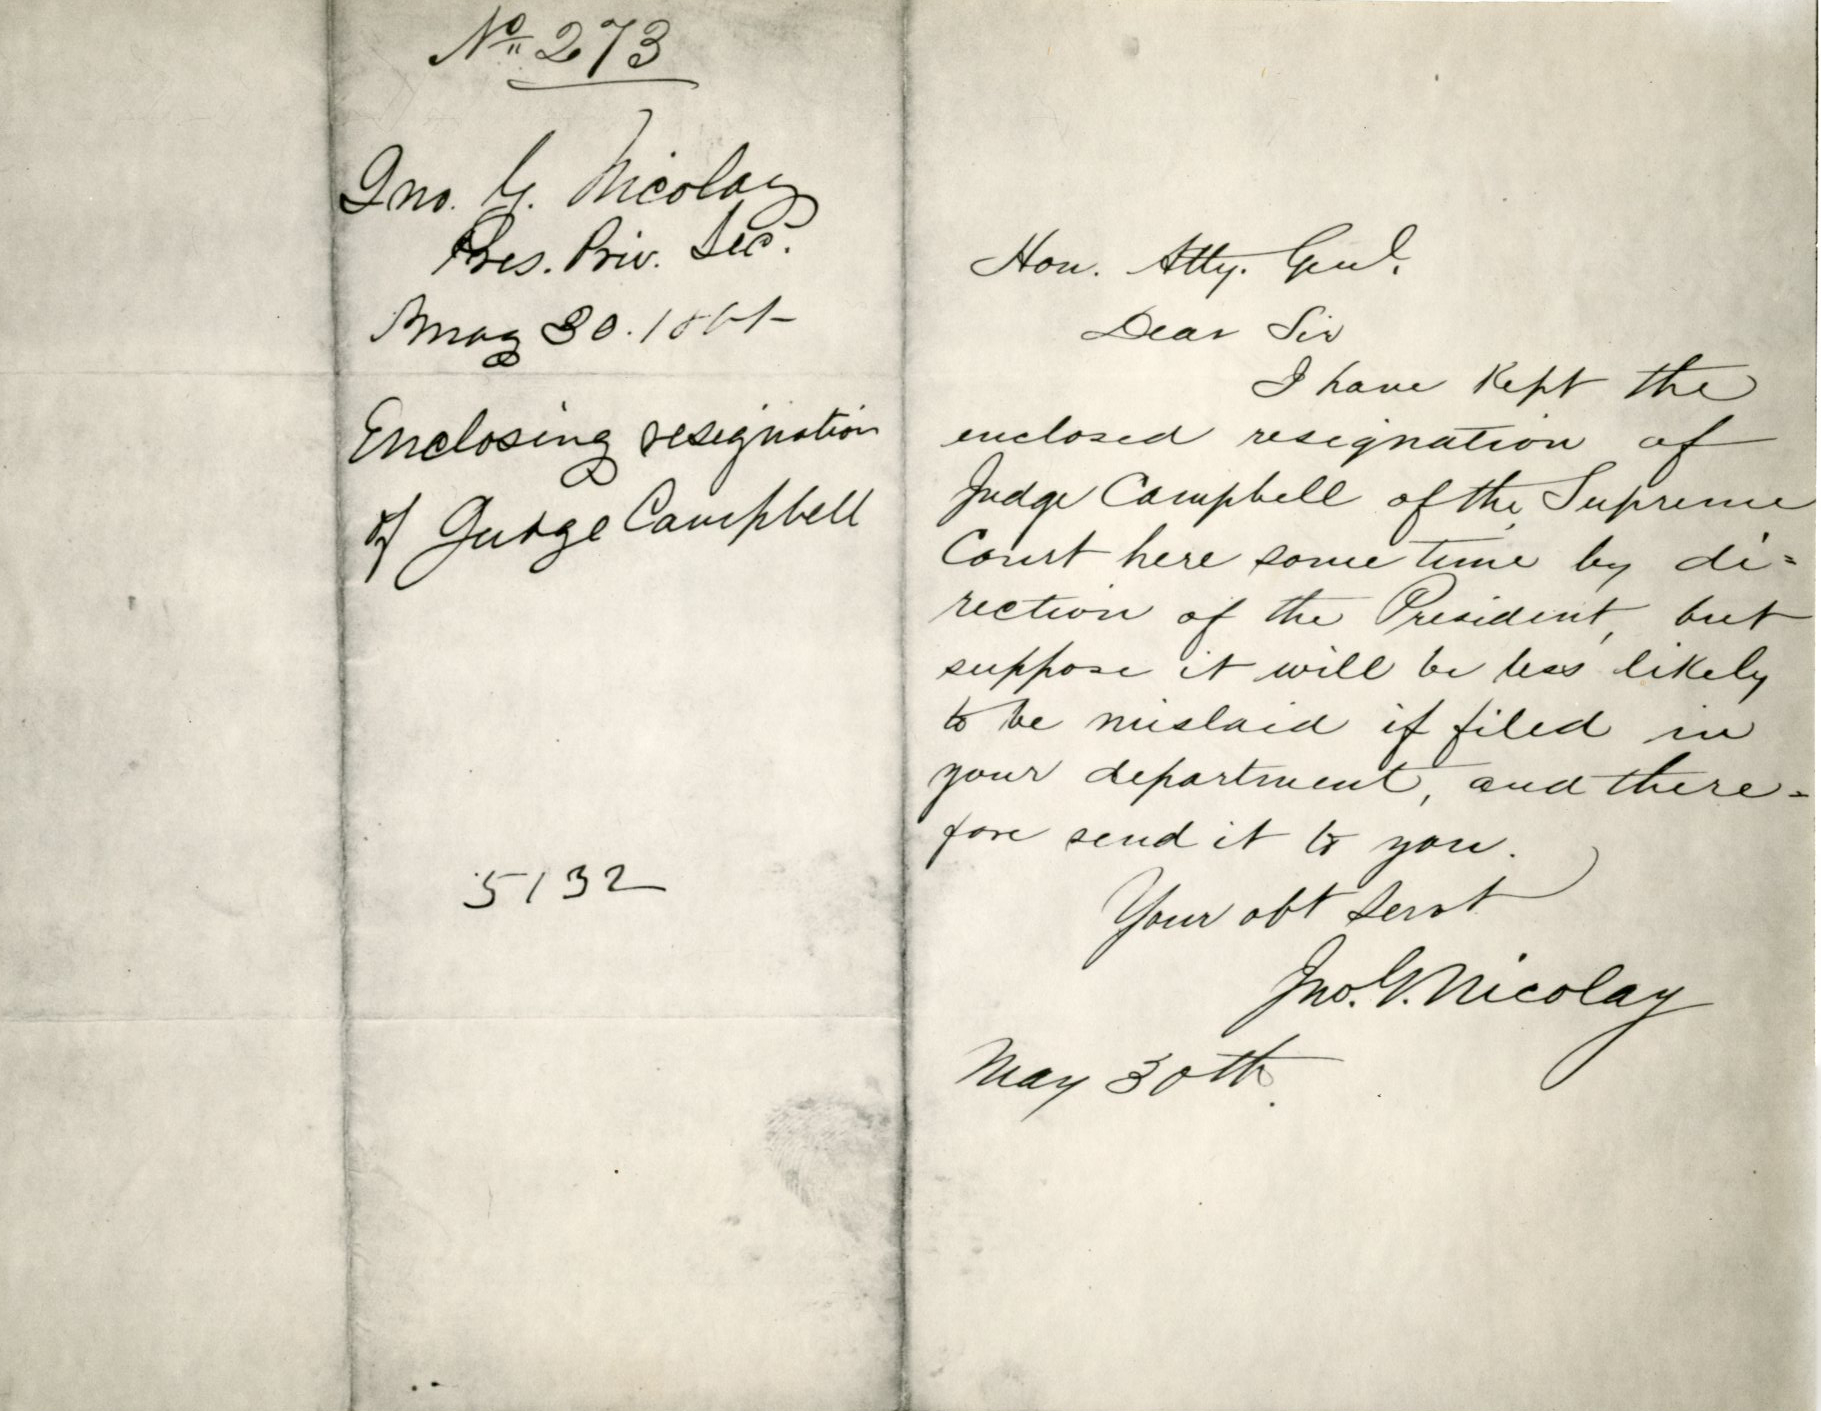 No. 273
Jno. G. Nicolay
Pres. Priv. Sec.
May 30. 1861
Enclosing resignation
of Judge Campbell
5132
Hon. Atty. Genl.
Dear Sir
I have kept the
enclosed resignation of
Judge Campbell of the Supreme
Court here some time by di=
rection of the President, but
suppose it will be less likely
to be mislaid if filed in
your department, and there=
fore send it to you.
Your obt Servt
Jno. G. Nicolay
May 30th.